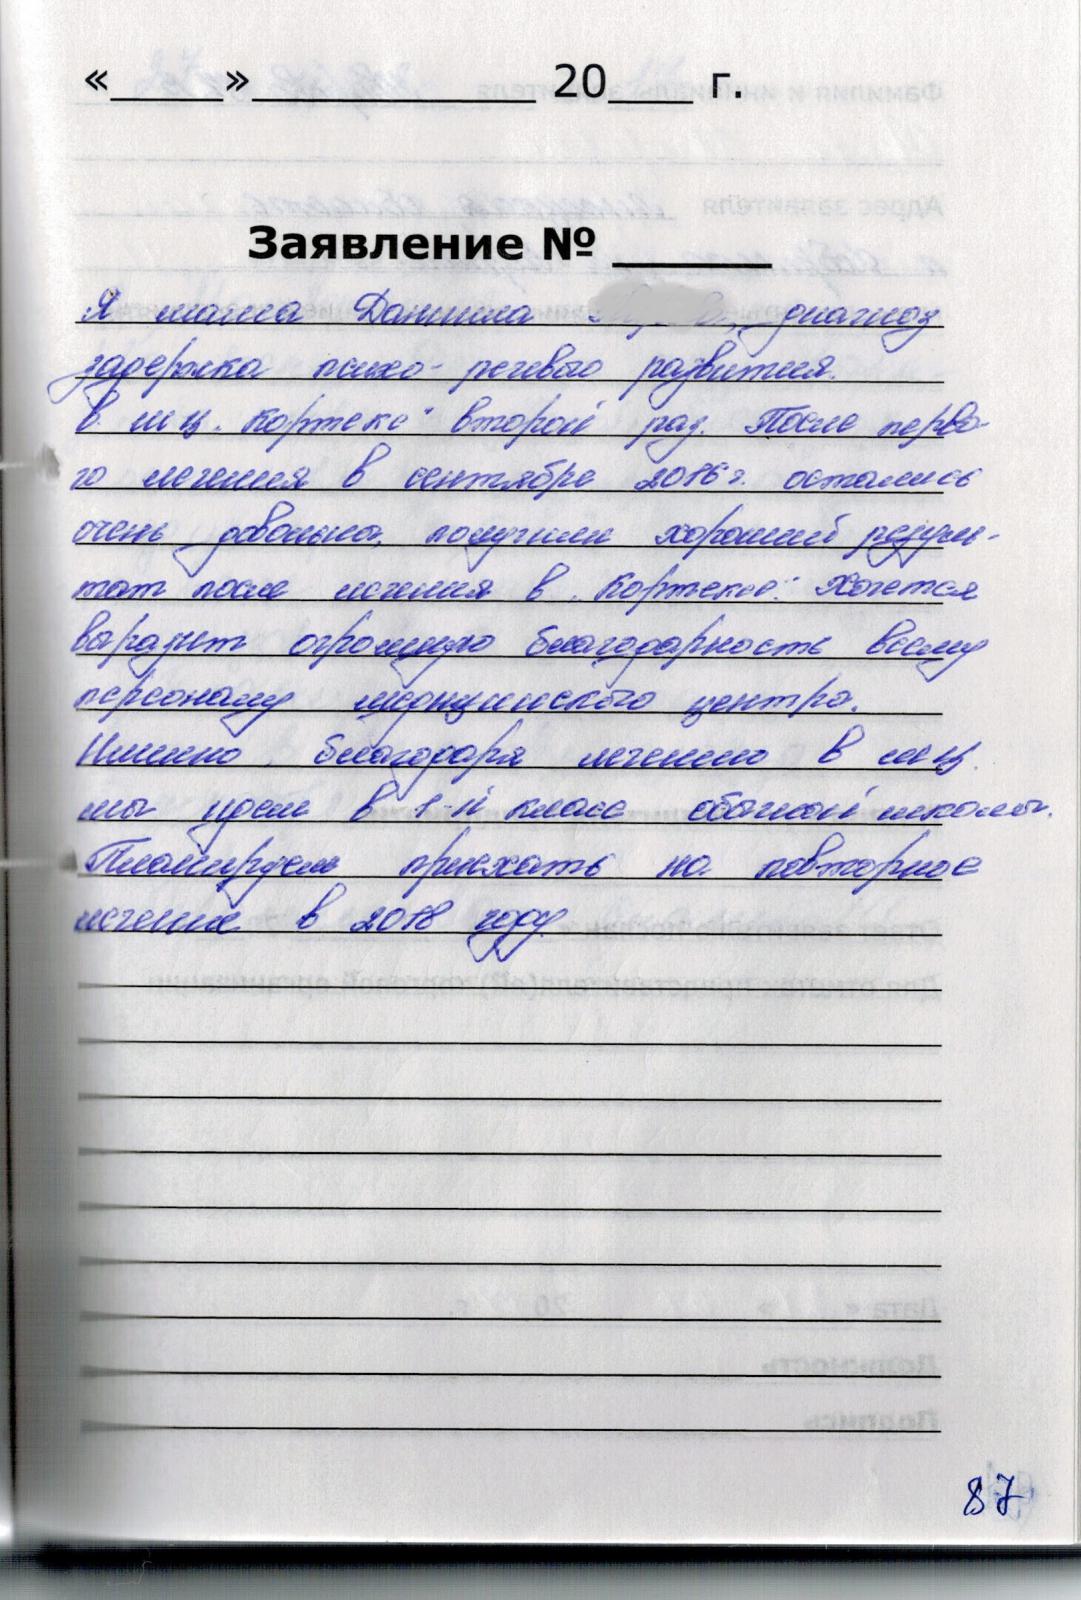 «_____»____________ 20____ г.
Заявление № _______
Я мама Даниила диагноз
задержка психо-речевого развития.
В м.ц. "Кортекс" второй раз. После перво-
го лечения в сентябре 2016 г. остались
очень довольны, получили хороший резуль-
тат после лечения в "Кортексе". Хочется
выразить огромную благодарность всему
персоналу медицинского центра.
Именно благодаря лечению в м.ц.
мы идем в 1-й класс обычной школы.
Планируем приехать на повторное
лечение в 2018 году.
87